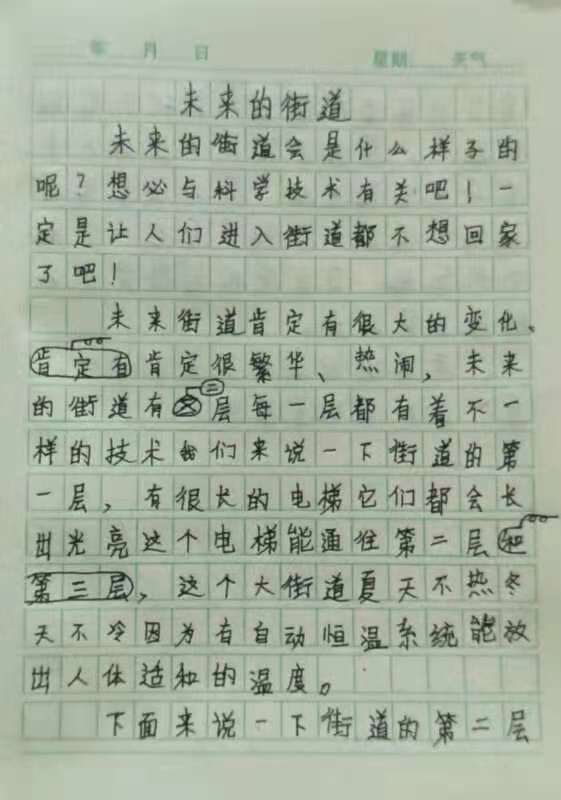 年 月 日 星期 天气
未来的街道
未来的街道会是什么样子的
呢？想必与科学技术有关吧！一
定是让人们进入街道都不想回家
了吧！
未来街道肯定有很大的变化、
肯定有肯定很繁华、热闹，未来
的街道有二层每一层都有着不一
样的技术我们来说一下街道的第
一层，有很长的电梯它们都会长
出光亮这个电梯能通住第二层和
第三层，这个大街道夏天不热冬
天不冷因为有自动恒温系统能放
出人体适和的温度。
下面来说一下街道的第二层